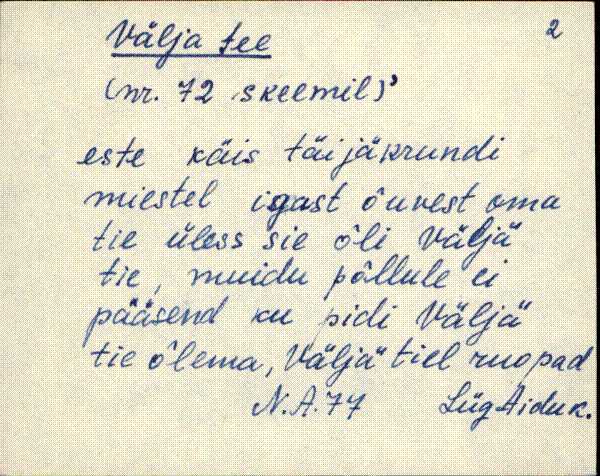 2
Välja tee
(nr. 72 skeemil)
este käis täijäkrundi
miestel igast õuvest oma
tie üless sie õli väljä
tie, muidu põllule ei
pääsend ku pidi väljä
tie õlema, väljä tiel ruopad
N.A. 77 LügAiduk.